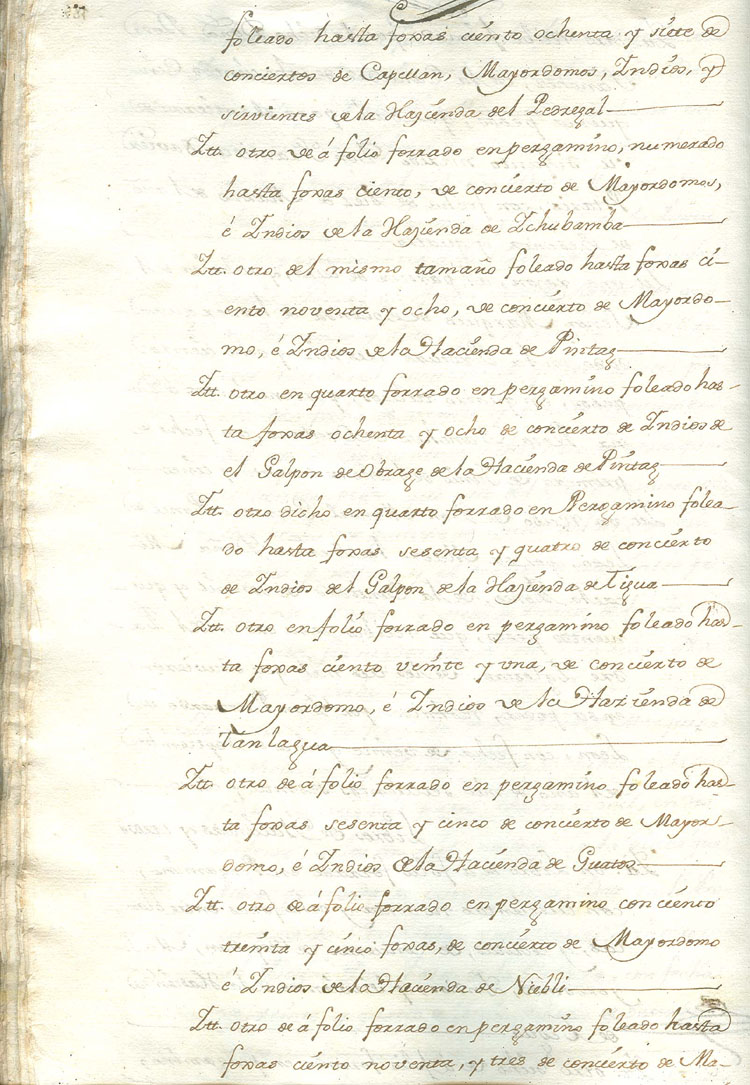 foleado hasta foxas ciento ochenta y siete de
conciertos de Capellan, Mayordomos, Indios, y
sirvientes de la Hazienda del Pedregal
Itt. otro de á folio forrado en pergamino, numerado
hasta foxas ciento, de concierto de Mayordomos,
é Indios de la Hazienda de Ichubamba
Itt. otro del mismo tamaño foleado hasta foxas ci-
ento noventa y ocho, de concierto de Mayordo-
mo, é Indios de la Hacienda de Pintag
Itt. otro en quarto forrado en pergamino foleado has-
ta foxas ochenta y ocho de concierto de Indios de
el Galpon de Obrage de la Hacienda de Pintag
Itt. otro dicho en quarto forrado en Pergamino folea-
do hasta foxas sesenta y quatro de concierto
de Indios del Galpon de la Hazienda de Tigua
Itt. otro en folio forrado en pergamino foleado has-
ta foxas ciento veinte y una, de concierto de
Mayordomo, é Indios de la Hazienda de
Tanlagua
Itt. otro de á folio forrado en pergamino foleado has-
ta foxas sesenta y cinco de concierto de Mayor-
domo, é Indios de la Hacienda de Guatos
Itt. otro de á folio forrado en pergamino con ciento
treinta y cinco foxas, de concierto de Mayordomo
é Indios de la Hacienda de Niebli
Itt. otro de á folio forrado en pergamino foleado hasta
foxas ciento noventa, y tres de concierto de Ma-